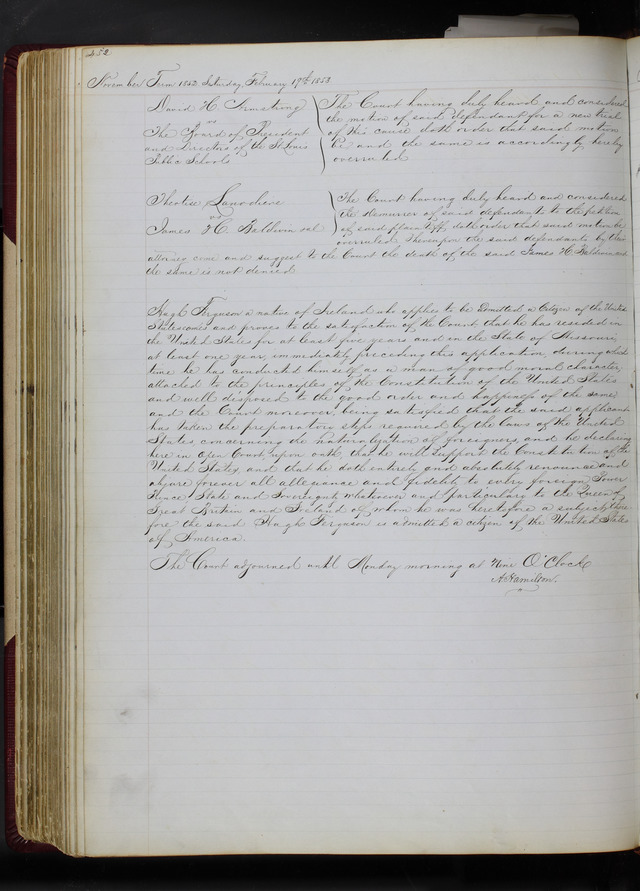 452
November Term 1852 Saturday February 19th 1853
David H Armstrong
vs
The Board of President
and Directors of the St Louis
Public Schools
The Court having duly heard and considered
the motion of said defendant for a new trial
of this cause doth order that said motion
be and the same is accordingly hereby
overruled
James H. Baldwin et al
vs
The Court having duly heard and considered
the demurrer of said defendant to the petition
of said plaintiff, doth order that said motion be
overruled, Thereupon the said defendants by their
attorney come and suggest to the Court the death of the said James H. Baldwin and
the same is not denied
Hugh Ferguson a native of Ireland who applies to be admitted a Citizen of the United
States comes and proves to the satisfaction of the Court that he has resided in
the United States for at least five years and in the State of Missouri,
at least one year, immediately preceding this application, during which
time he has conducted himself as a man of good moral character,
attached to the principles of the Constitution of the United States
and well disposed to the good order and happiness of the same
and the Court moreover, being satisfied that the said applicant
has taken the preparatory steps required by the laws of the United
States, concerning the naturalization of foreigners, and he declaring
here in open Court, upon oath, that he will support the Constitution of the
United States, and that he doth entirely and absolutely renounce and
abjure forever all allegiance and fidelity to every foreign Power
Prince State and Sovereignty whatsoever and particularly to the Queen of
Great Britain and Ireland of whom he was heretofore a subject, there
fore the said Hugh Ferguson is admitted a citizen of the United States
of America.
The Court adjourned until Monday morning at Nine O'Clock
A. Hamilton.